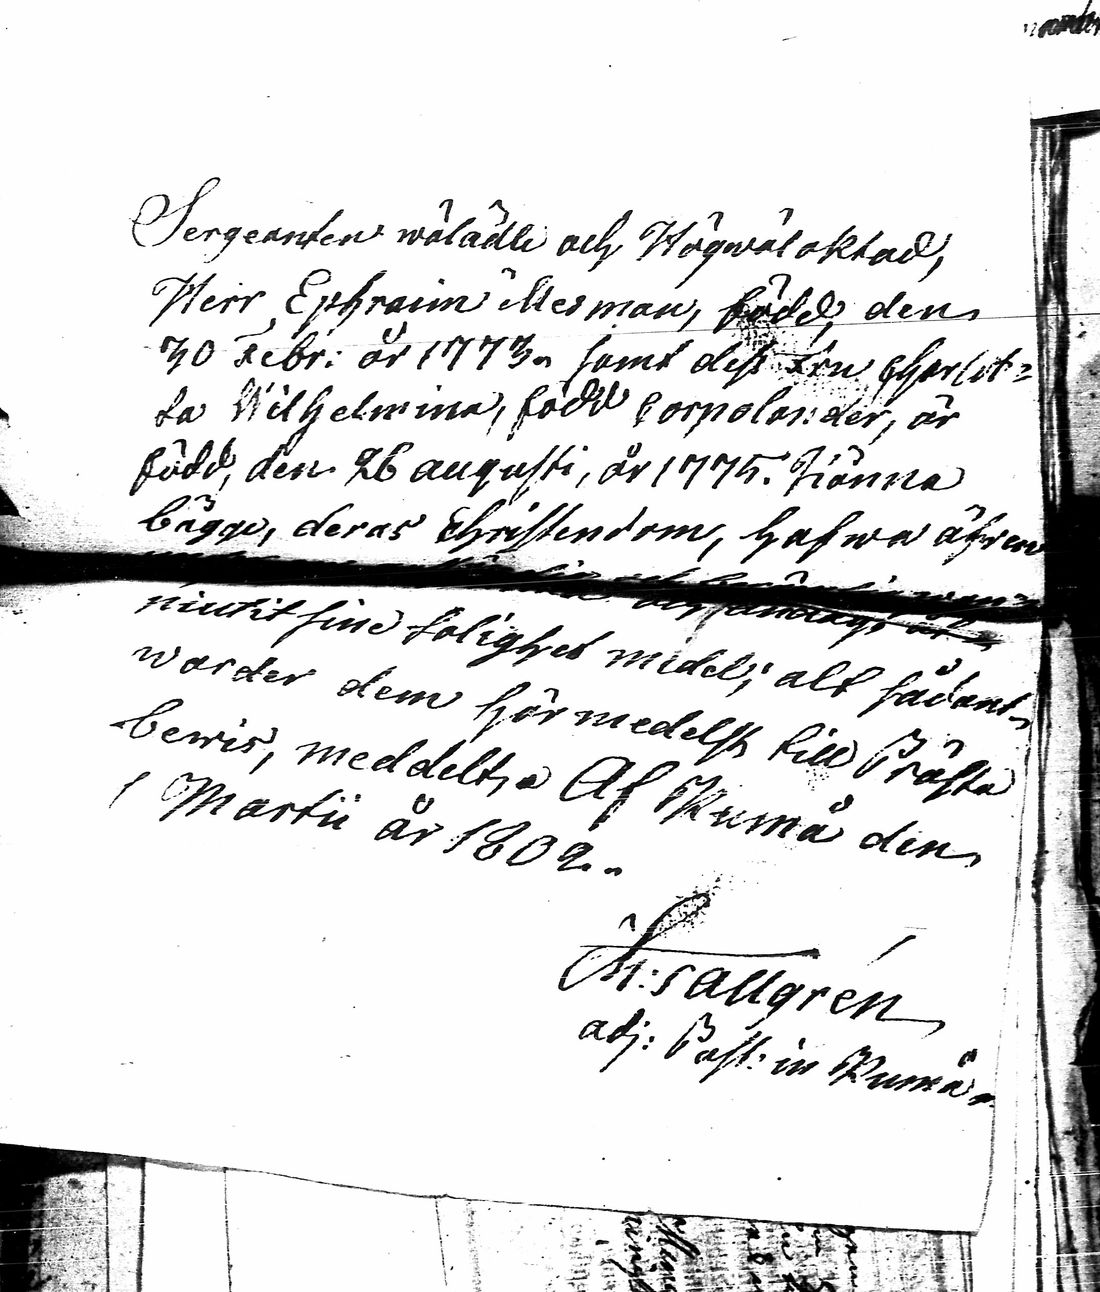 Sergeanten wälädle och Högwälaktad,
Herr Ephraim Nesman, född, den
30 Febr: år 1773. samt dess Fru Charlot=
ta Wilhelmina, född Corpolander, är
född, den 26 augusti, år 1775. Kiänna
bägge, deras Christendom, hafwa äfwen
och
niutit sine salighet medel; alt sådant
warder dem härmedelst till Prästa
bewis, meddelt, Af Kumå den
1 Martii år 1802.
H: Sallgrén
adj: Past: in Kumå